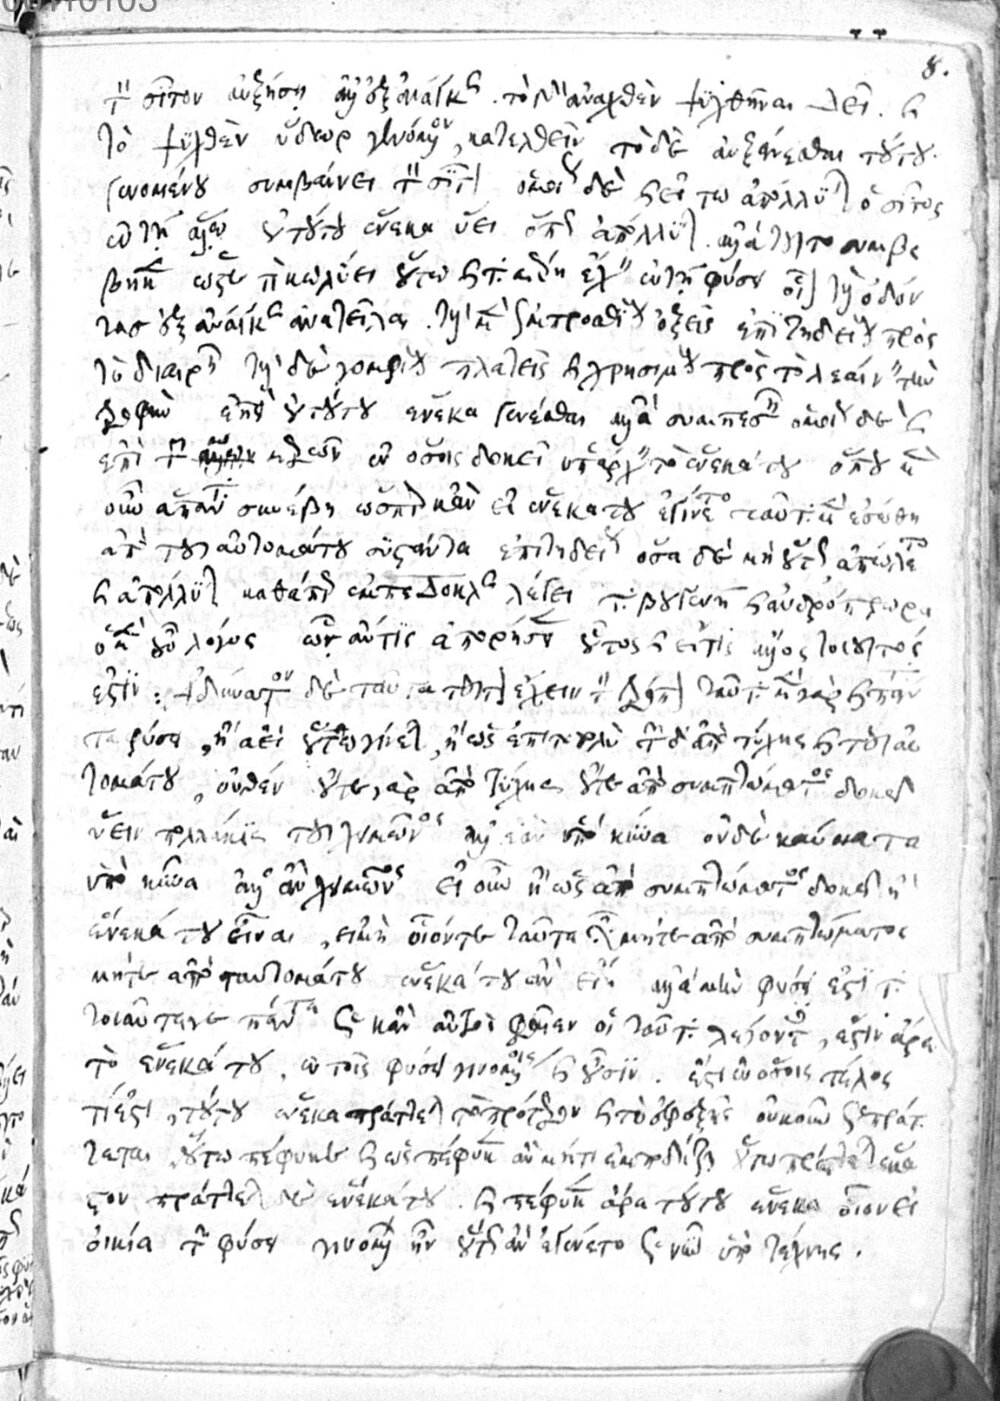 τὸν σῖτον αὐξήσῃ ἀλλ' ἐξ ἀνάγκης. τὸ γὰρ ἀναχθὲν ψυχθῆναι δεῖ. καὶ
τὸ ψυχθὲν ὕδωρ γενόμενον, κατελθεῖν τὸ δὲ αὐξάνεσθαι τούτου.
γενομένου συμβαίνει τὸν σῖτον ὁμοίως δὲ καὶ εἴ τω ἀπόλλυται ὁ σῖτος
ἐν τῇ ἅλῳ οὐ τούτου ἕνεκα ὕει ὅπως ἀπόλλυται ἀλλὰ τοῦτο συμβέ
βηκε ὥστε τί κωλύει οὕτω καὶ τὰ μέρη ἔχειν ἐν τῇ φύσει οἷον τοὺς ὀδόν
τας ἐξ ἀνάγκης ἀνατεῖλαι. τοὺς μὲν ἐμπροσθίους ὀξεῖς ἐπιτηδείους πρὸς
τὸ διαιρεῖν τοὺς δὲ γομφίους πλατεῖς καὶ χρησίμους πρὸς τὸ λεαίνειν τὴν
τροφὴν ἐπεὶ οὐ τούτου ἕνεκα γενέσθαι ἀλλὰ συμπεσεῖν ὁμοίως δὲ καὶ
ἐπὶ τῶν μερῶν ἐν ὅσοις δοκεῖ ὑπάρχειν τὸ ἕνεκά του ὅπου μὲν
οὖν ἅπαντα συνέβη ὥσπερ κἂν εἰ ἕνεκά του ἐγίνετο ταῦτα μὲν ἐσώθη
ἀπὸ τοῦ αὐτομάτου συστάντα ἐπιτηδείως ὅσα δὲ μὴ οὕτως ἀπώλετο
καὶ ἀπόλλυται καθάπερ ἐμπεδοκλῆς λέγει τὰ βουγενῆ καὶ ἀνδρόπρωρα
ὁ μὲν οὖν λόγος ὧν ἄν τις ἀπορήσειεν οὗτος καὶ εἴ τις ἄλλος τοιοῦτός
ἐστιν: ἀδύνατον δὲ τοῦτον ἔχειν τὸν τρόπον ταῦτα μὲν γὰρ καὶ πάντα
τὰ φύσει, ἢ ἀεὶ οὕτω γίνεται, ἢ ὡς ἐπιτοπολὺ τῶν δ' ἀπὸ τύχης καὶ τοῦ αὐ
τομάτου, οὐθέν οὔτε γὰρ ἀπὸ τύχης οὔτε ἀπὸ συμπτώματος δοκεῖ
ὕειν πολλάκις τοῦ χειμῶνος ἀλλ' ἐὰν ὑπὸ κύνα οὐδὲ καύματα
ὑπὸ κύνα ἀλλ' ἂν χειμῶνος εἰ οὖν ἢ ὡς ἀπὸ συμπτώματος δοκεῖ ἢ
ἕνεκά του εἶναι, εἰ μὴ οἷόντε ταῦτα εἶναι μήτε ἀπὸ συμπτώματος
μήτε ἀπὸ ταυτομάτου ἕνεκά του ἂν εἴη ἀλλὰ μὴν φύσει ἐστὶ τὰ
τοιαῦτα γε πάντα ὡς κἂν αὐτοὶ φαῖεν οἱ ταῦτα λέγοντες, ἔστιν ἄρα
τὸ ἕνεκά του, ἐν τοῖς φύσει γινομένοις καὶ οὖσιν. ἔτι ἐν ὅσοις τέλος
τί ἐστι, τούτου ἕνεκα πράττεται τὸ πρότερον καὶ τὸ ἐφεξῆς οὐκοῦν ὡς πράτ
τεται, οὕτω πέφυκε καὶ ὡς πέφυκε ἂν μή τι ἐμποδίζῃ οὕτω πράττεται ἕκα
στον πράττεται δὲ ἕνεκά του. καὶ πέφυκε ἄρα τούτου ἕνεκα οἷον εἰ
οἰκία τῶν φύσει γινομένων ἦν οὕτως ἂν ἐγένετο ὡς νῦν ὑπὸ τέχνης.